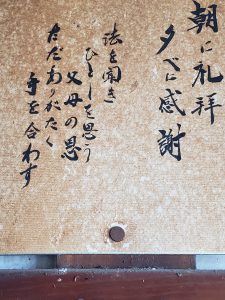 朝に礼拝
夕べに感謝
法を聞き
ひとしを思う
父母の恩
ただありがたく
手を合わす